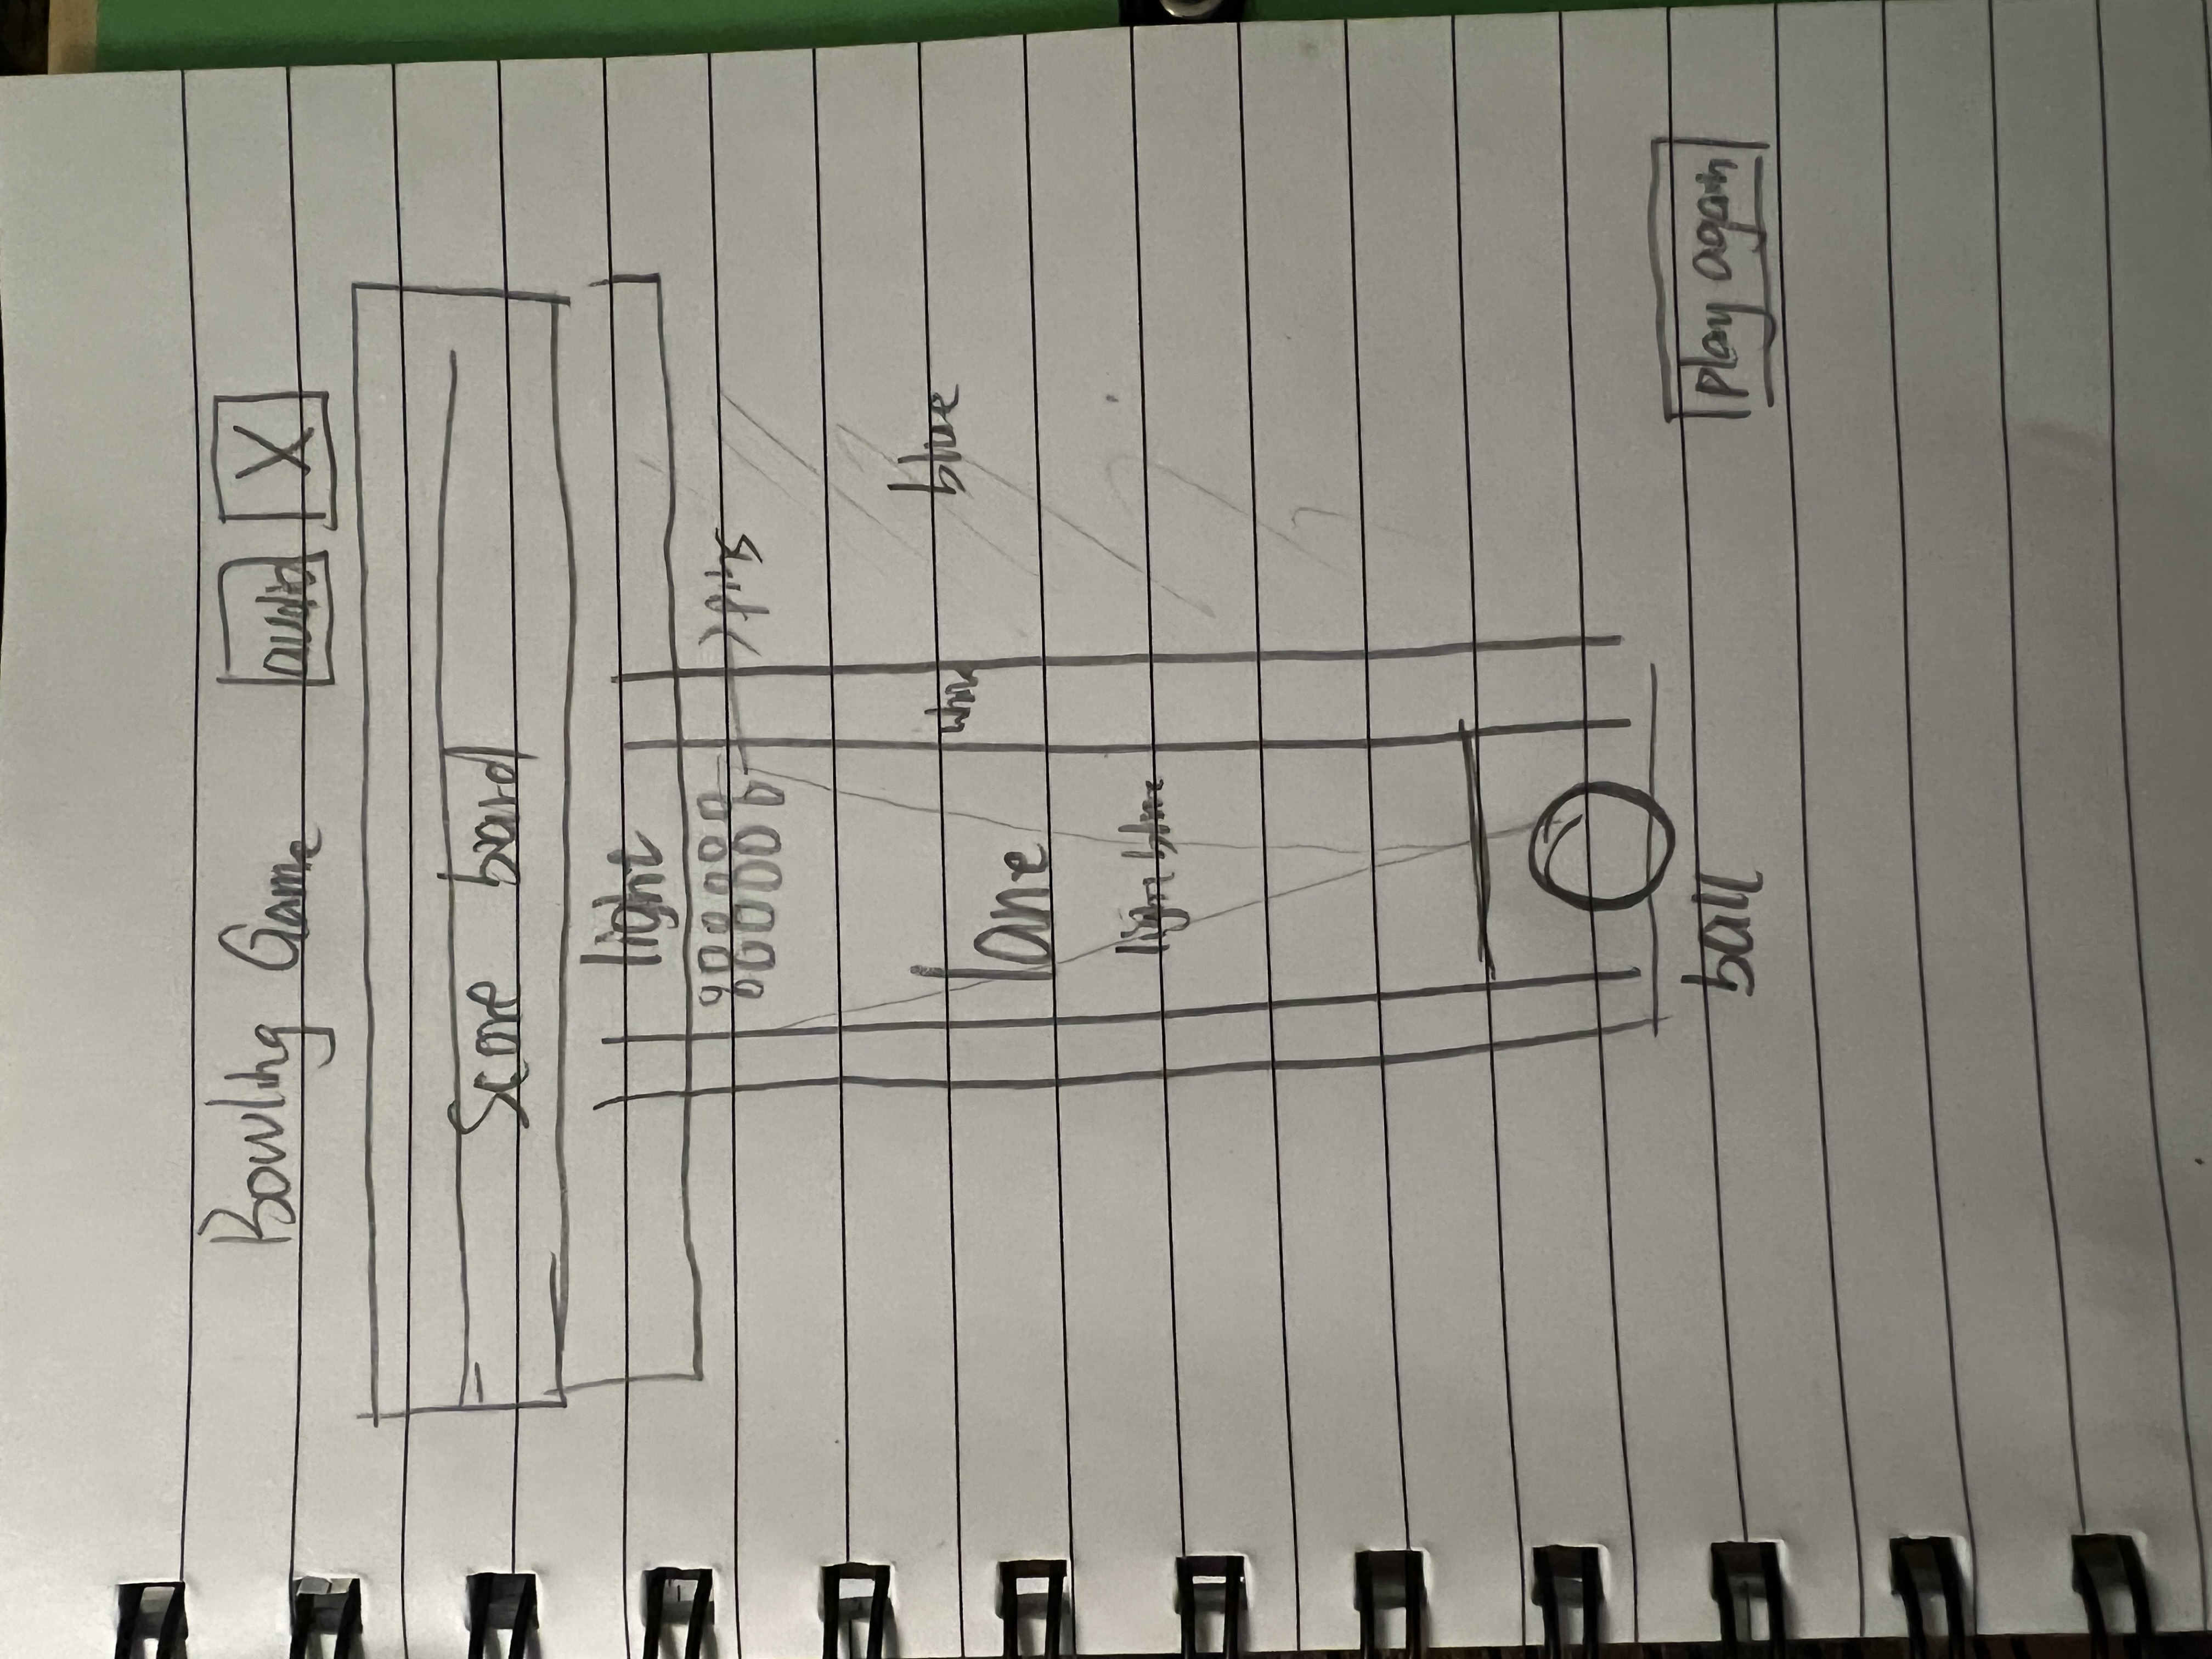 Bowling Game audio X
Score board
light
pins
blue
lane
light blue
ball
play again